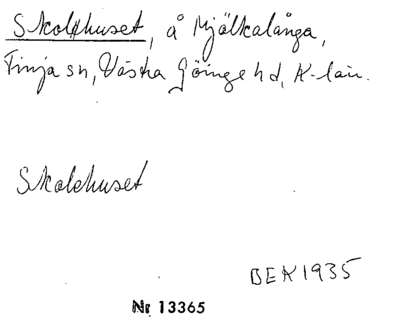 Skolehuset, å Mjälkalånga,
Finja sn, Västra Göinge hd, K-län.
Skolehuset
BEK 1935
Nr 13365